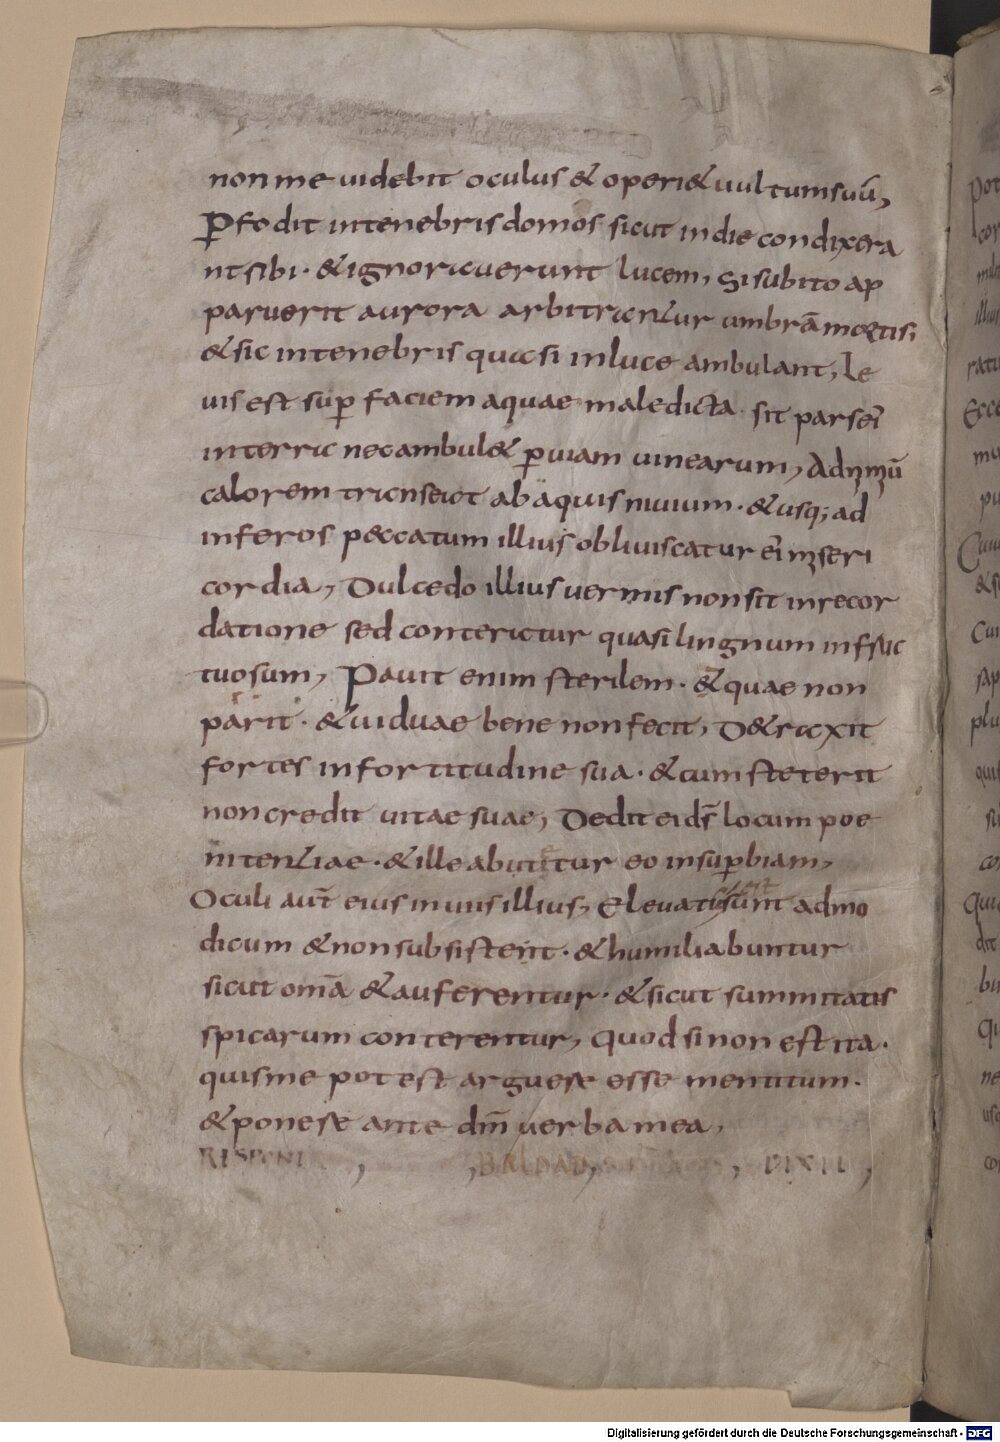 non me uidebit oculus & operi& uultum suū,
Pfodit in tenebris domos sicut in die condixera
nt sibi · & ignorauerunt lucem, Si subito ap
paruerit aurora arbitrantur umbrā mortis,
& sic in tenebris quasi in luce ambulant, Le
uis est sup faciem aquae maledicta sit pars eī
in terra nec ambul& p uiam uinearum, Ad nimiū
calorem transeat ab aquis niuium · & usq; ad
inferos peccatum illius obliuiscatur eī miseri
cordia, Dulcedo illius uermis non sit in recor
datione sed conteratur quasi lingnum infruc
tuosum, Pauit enim sterilem · & quae non
parit · & uiduae bene non fecit, D&raxit
fortes in fortitudine sua · & cum steterit
non credit uitae suae, Dedit ei ds̄ locum poe
nitentiae · & ille abutitur eo in supbiam,
Oculi aut̄ eius in uiis illius, Eleuati sunt ad mo
dicum & non subsistent · & humiliabuntur
sicut omā & auferentur · & sicut summitatis
spicarum conterentur, Quod si non est ita ·
quis me potest arguese esse mentitum ·
& ponese ante dm̄ uerba mea,
RESPONE , , BALDAD, , DIXIT ,
pot
cor
illiu
ratu
Ecce
mu
pu
Cum
&s
cui
sap
plu
quis
su
co
Qui
dit
bu
Qi
ne
uso
co
Digitalisierung gefördert durch die Deutsche Forschungsgemeinschaft - DFG